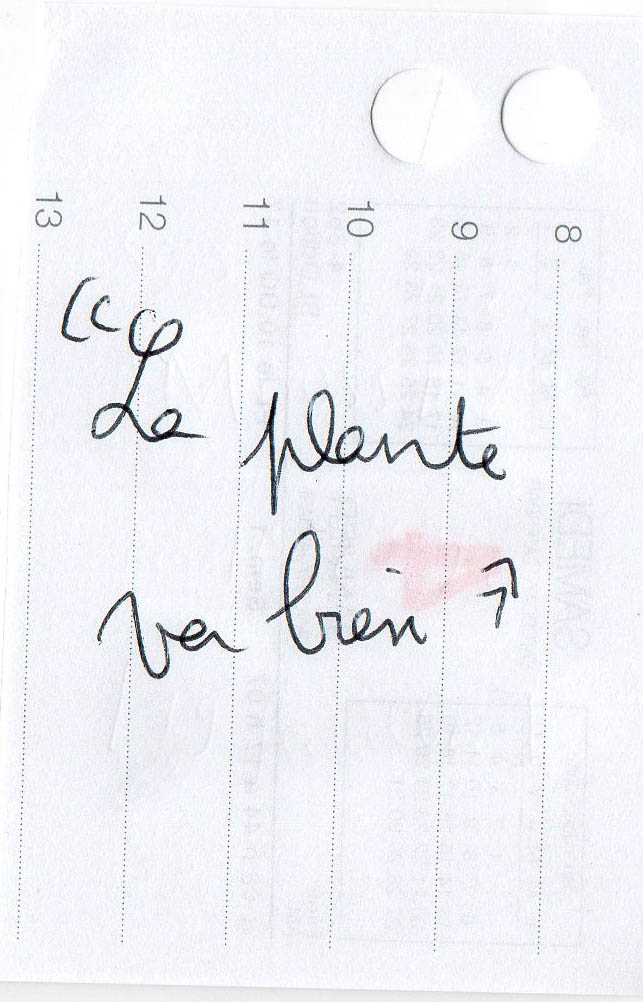 13
12
11
10
9
8
« La plante
va bien »